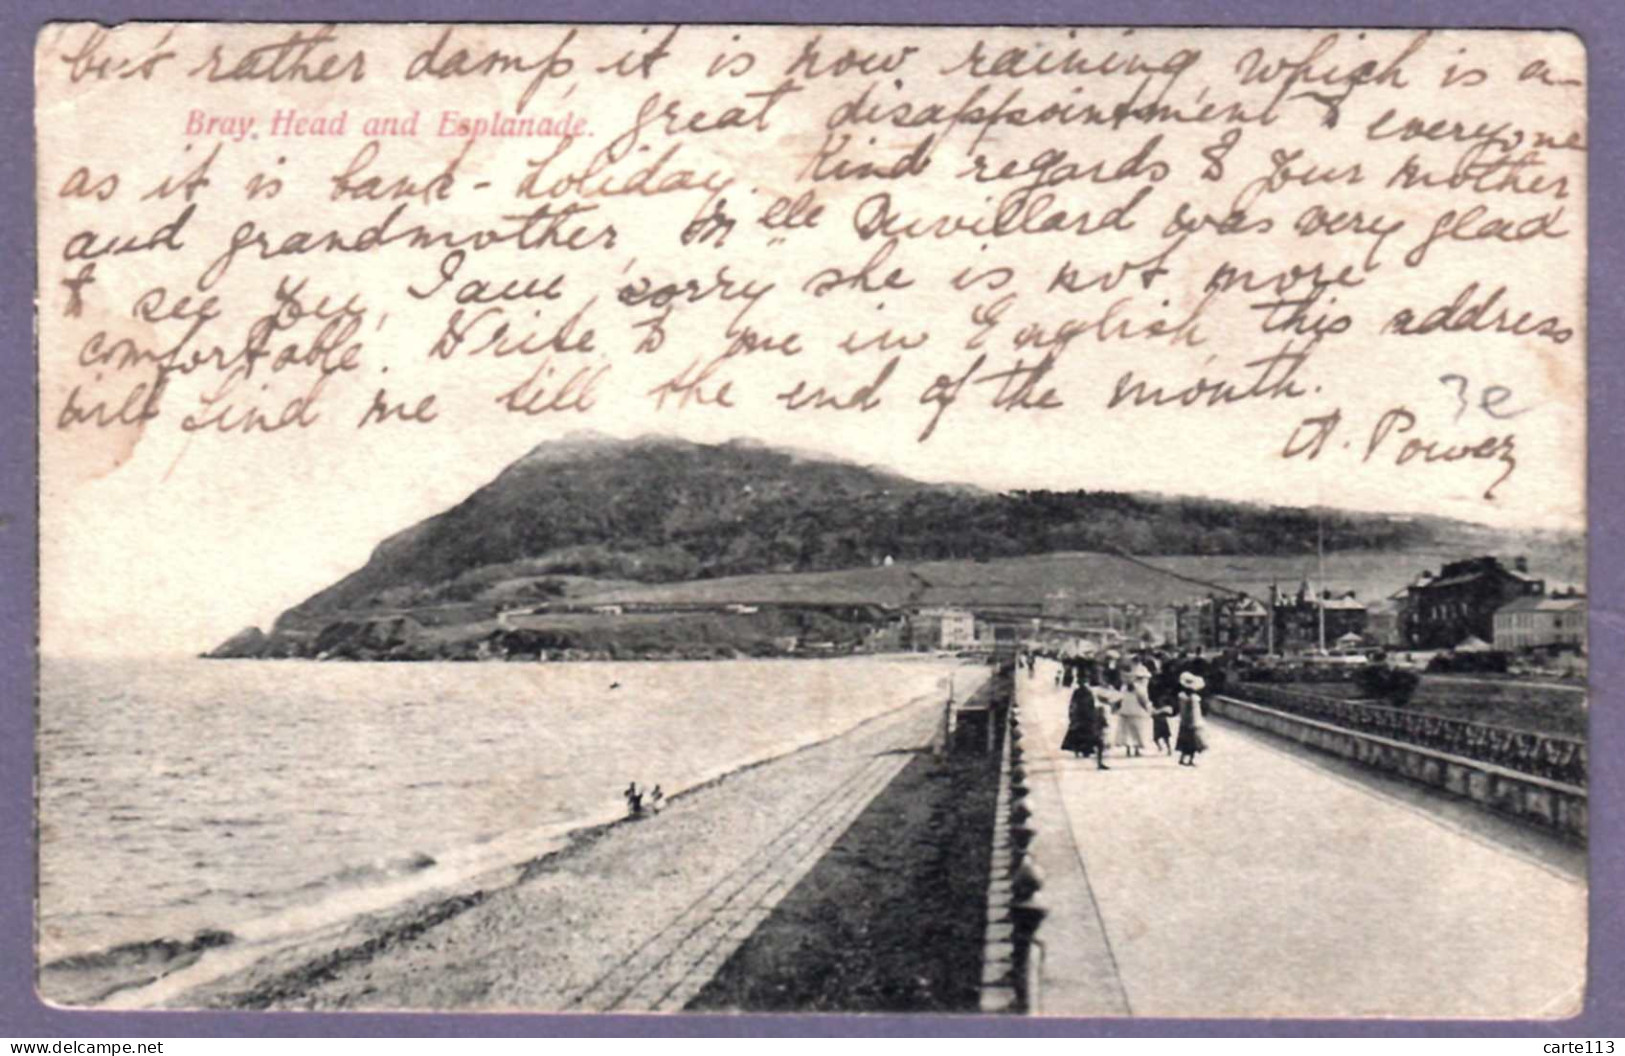 but rather damp, it is now raining, which is a
Bray Head and Esplanade.
great disappointment to everyone
as it is bank-holiday. Kind regards to your mother
and grandmother, Melle Duvillard was very glad
to see you, I am sorry she is not more
comfortable. Write to me in English, this address
will find me till the end of the month.
3e
A. Power
carte113